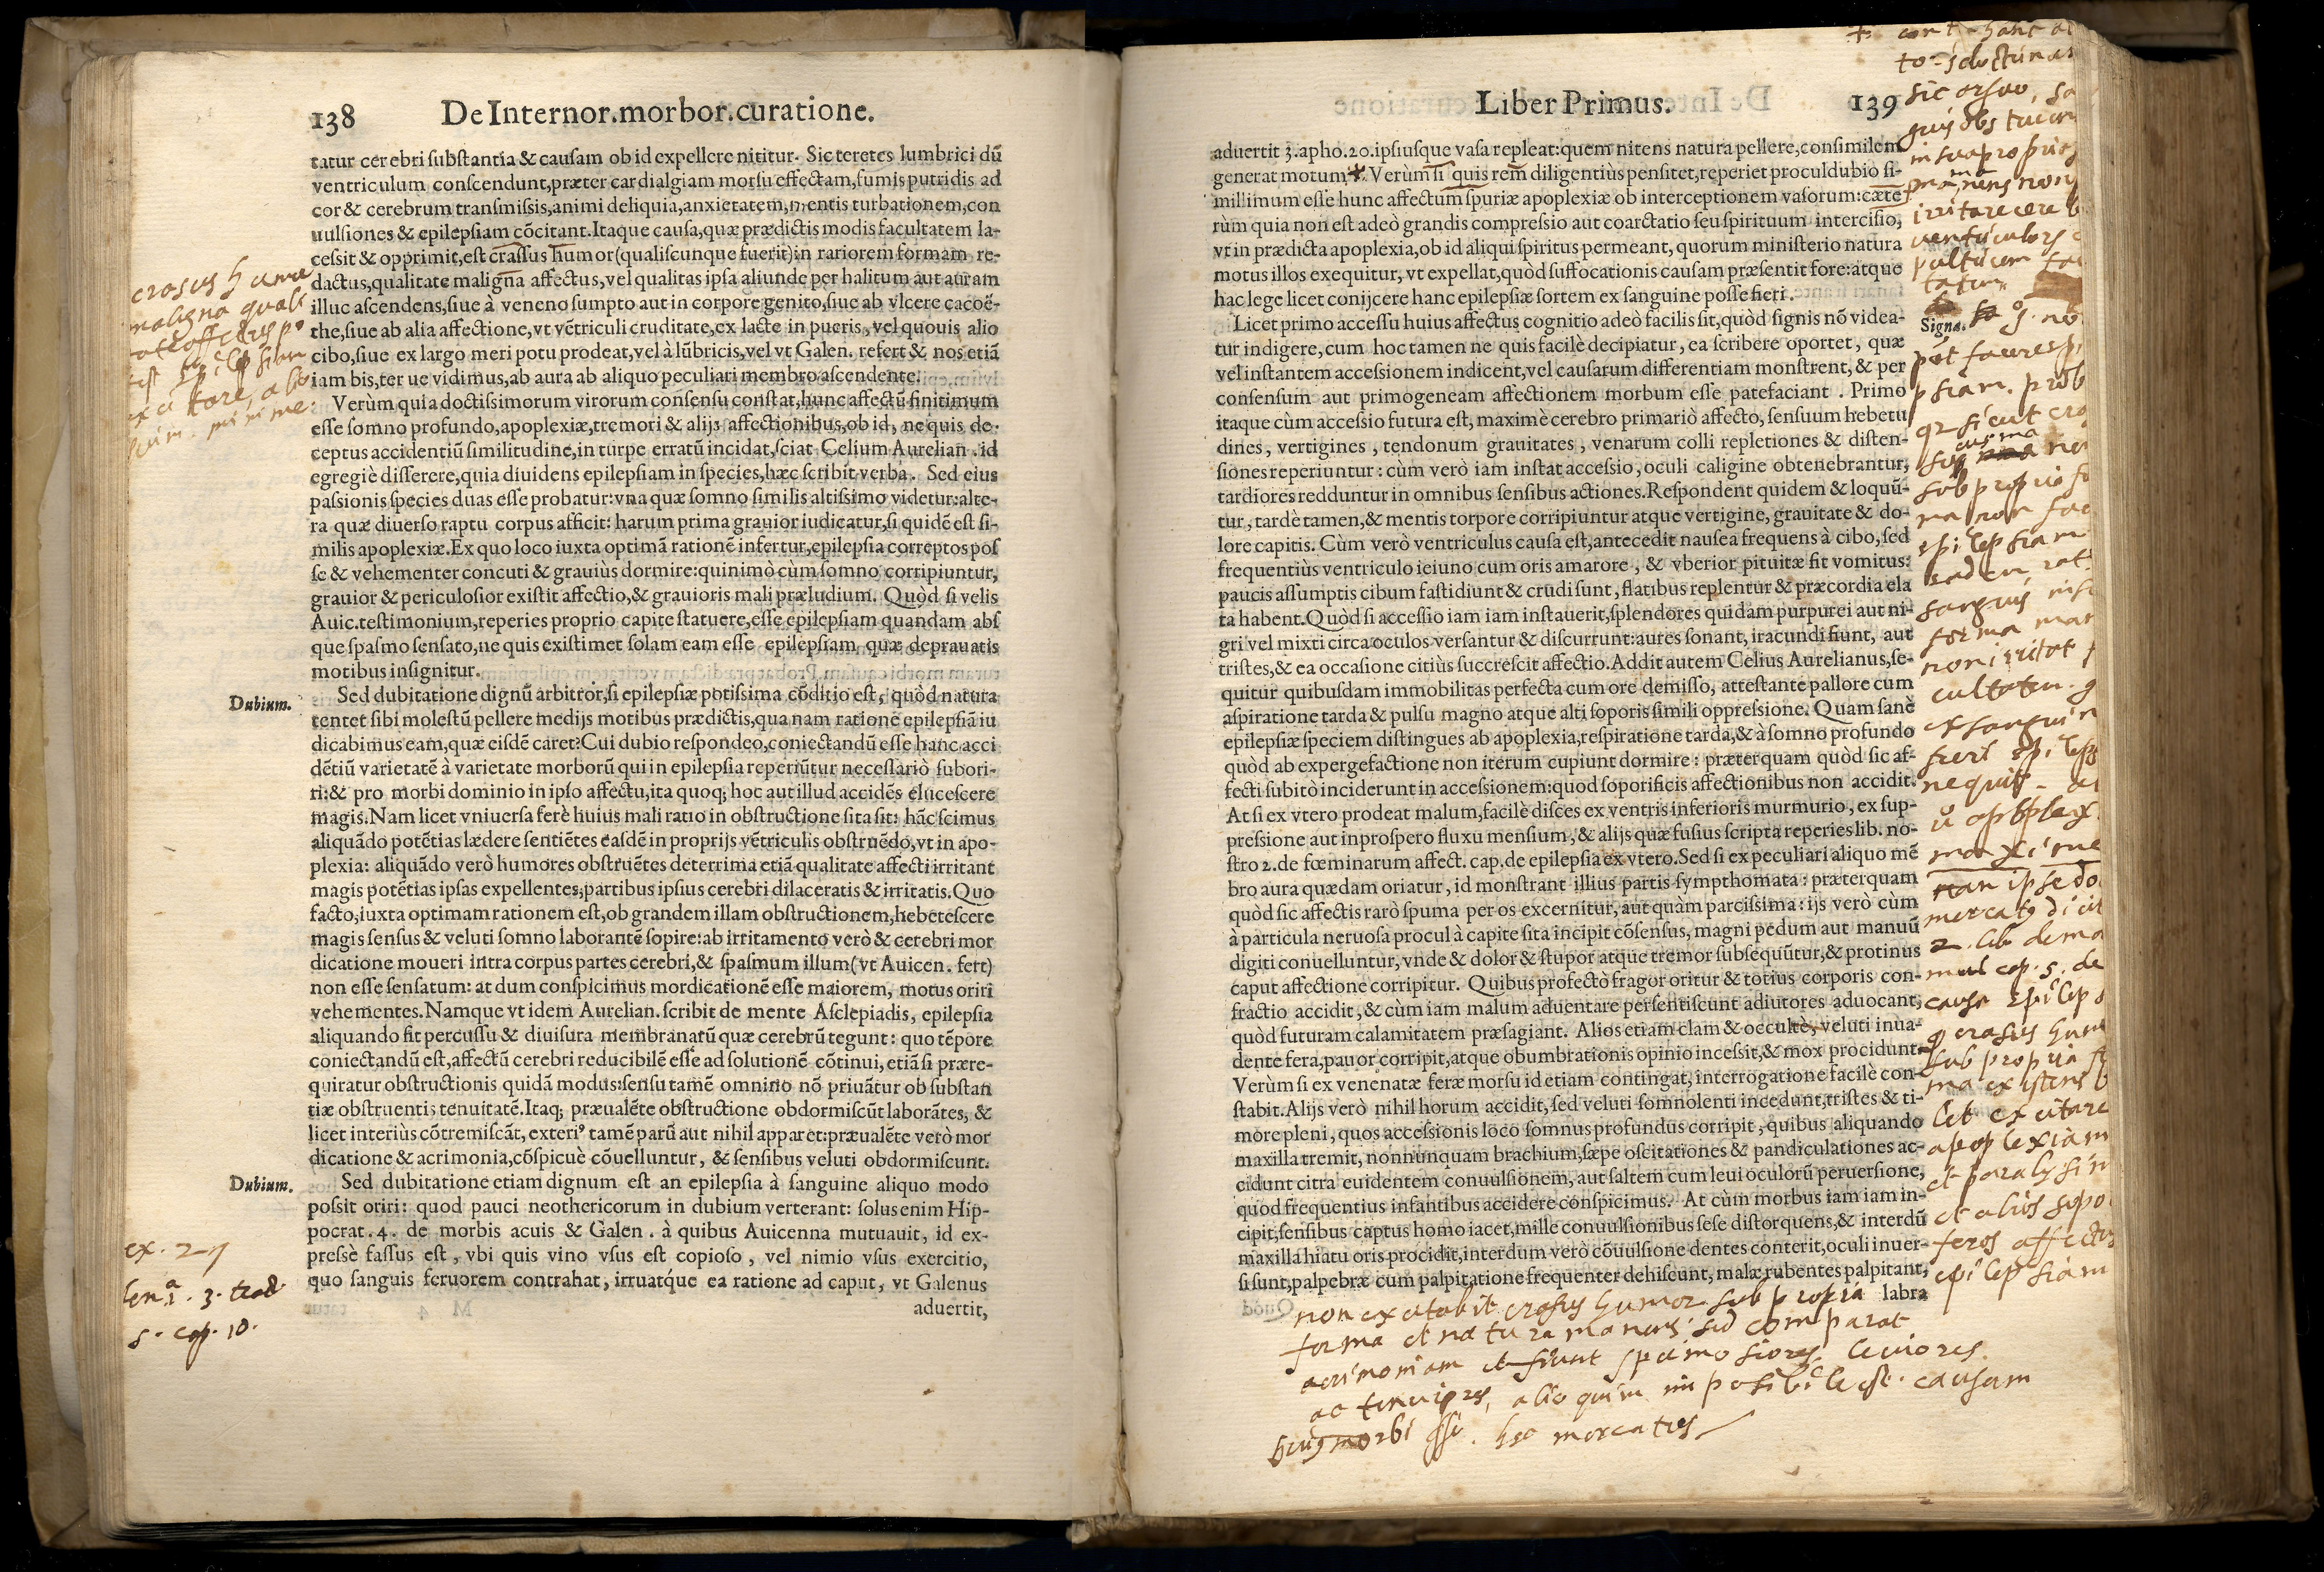 138 De Internor.morbor.curatione.
tatur cerebri substantia & causam ob id expellere nititur. Sic teretes lumbrici dũ
ventriculum conscendunt,præter cardialgiam morsu effectam,fumis putridis ad
cor & cerebrum transmissis,animi deliquia,anxietatem,mentis turbationem,con
uulsiones & epilepsiam cõcitant.Itaque causa,quæ prædictis modis facultatem la-
cessit & opprimit,est crassus humor(qualiscunque fuerit)in rariorem formam re-
dactus,qualitate maligna affectus,vel qualitas ipsa aliunde per halitum aut auram
illuc ascendens,siue à veneno sumpto aut in corpore genito,siue ab vlcere cacoë-
the,siue ab alia affectione,vt vẽtriculi cruditate,ex lacte in pueris,vel quouis alio
cibo,siue ex largo meri potu prodeat,vel à lũbricis,vel vt Galen. refert & nos etiã
iam bis,ter ue vidimus,ab aura ab aliquo peculiari membro ascendente.
crasus humor
maligna quali
Verùm quia doctissimorum virorum consensu constat,hunc affectũ finitimum
esse somno profundo,apoplexiæ,tremori & alijs affectionibus,ob id, ne quis de-
ceptus accidentiũ similitudine,in turpe erratũ incidat,sciat Celium Aurelian.id
egregiè disserere,quia diuidens epilepsiam in species,hæc scribit verba. Sed eius
passionis species duas esse probatur:vna quæ somno similis altissimo videtur:alte-
ra quæ diuerso raptu corpus afficit: harum prima grauior iudicatur,si quidẽ est si-
milis apoplexiæ.Ex quo loco iuxta optimã rationẽ infertur,epilepsia correptos pos
se & vehementer concuti & grauiùs dormire:quinimò cùm somno corripiuntur,
grauior & periculosior existit affectio,& grauioris mali præludium. Quòd si velis
Auic.testimonium,reperies proprio capite statuere,esse epilepsiam quandam abs
que spasmo sensato,ne quis existimet solam eam esse epilepsiam quæ deprauatis
motibus insignitur.
Dubium.
Sed dubitatione dignũ arbitror,si epilepsiæ potissima cõditio est, quòd natura
tentet sibi molestũ pellere medijs motibus prædictis,qua nam ratione epilepsiã iu
dicabimus eam,quæ eisdẽ caret?Cui dubio respondeo,coniectandũ esse hanc acci
dẽtiũ varietatẽ à varietate morborũ qui in epilepsia reperiũtur necessariò subori-
ri:& pro morbi dominio in ipso affectu,ita quoq; hoc aut illud accidẽs elucescere
magis.Nam licet vniuersa ferè huius mali ratio in obstructione sita sit: hãc scimus
aliquãdo potẽtias lædere sentiẽtes easdẽ in proprijs vẽtriculis obstruẽdo,vt in apo-
plexia: aliquãdo verò humores obstruẽtes deterrima etiã qualitate affecti irritant
magis potẽtias ipsas expellentes,partibus ipsius cerebri dilaceratis & irritatis.Quo
facto,iuxta optimam rationem est,ob grandem illam obstructionem,hebetescere
magis sensus & veluti somno laborantẽ sopire:ab irritamento verò & cerebri mor
dicatione moueri intra corpus partes cerebri,& spasmum illum(vt Auicen. fert)
non esse sensatum: at dum conspicimus mordicationẽ esse maiorem, motus oriri
vehementes.Namque vt idem Aurelian.scribit de mente Asclepiadis, epilepsia
aliquando fit percussu & diuisura membranarũ quæ cerebrũ tegunt: quo tẽpore
coniectandũ est,affectũ cerebri reducibilẽ esse ad solutionẽ cõtinui,etiã si prære-
quiratur obstructionis quidã modus:sensu tamẽ omnino nõ priuãtur ob substan
tiæ obstruentis tenuitatẽ.Itaq; præualẽte obstructione obdormiscũt laborãtes, &
licet interiùs cõtremiscãt, exteri⁹ tamẽ parũ aut nihil apparet:præualẽte verò mor
dicatione & acrimonia,cõspicuè cõuelluntur, & sensibus veluti obdormiscunt.
Dubium.
Sed dubitatione etiam dignum est an epilepsia à sanguine aliquo modo
possit oriri: quod pauci neothericorum in dubium verterant: solus enim Hip-
pocrat.4. de morbis acuis & Galen. à quibus Auicenna mutuauit, id ex-
pressè fassus est, vbi quis vino vsus est copioso, vel nimio vsus exercitio,
quo sanguis feruorem contrahat, irruatq́ue ea ratione ad caput, vt Galenus
aduertit,
s. cap. 10.
Liber Primus. 139
aduertit 3.apho.20.ipsiusque vasa repleat:quem nitens natura pellere,consimilem
generat motum.Verùm si quis rem diligentiùs pensitet,reperiet proculdubio si-
millimum esse hunc affectum spuriæ apoplexiæ ob interceptionem vasorum:cæte
rùm quia non est adeò grandis compressio aut coarctatio seu spirituum intercisio,
vt in prædicta apoplexia,ob id aliqui spiritus permeant,quorum ministerio natura
motus illos exequitur, vt expellat,quòd suffocationis causam præsentit fore:atque
hac lege licet conijcere hanc epilepsiæ sortem ex sanguine posse fieri.
Signa.
Licet primo accessu huius affectus cognitio adeò facilis sit,quòd signis nõ videa-
tur indigere,cum hoc tamen ne quis facilè decipiatur, ea scribere oportet, quæ
vel instantem accessionem indicent,vel causarum differentiam monstrent, & per
consensum aut primogeneam affectionem morbum esse patefaciant. Primo
itaque cùm accessio futura est, maximè cerebro primariò affecto, sensuum hebetu
dines, vertigines, tendonum grauitates, venarum colli repletiones & disten-
siones reperiuntur: cùm verò iam instat accessio, oculi caligine obtenebrantur,
tardiores redduntur in omnibus sensibus actiones.Respondent quidem & loquũ-
tur, tardè tamen,& mentis torpore corripiuntur atque vertigine, grauitate & do-
lore capitis. Cùm verò ventriculus causa est,antecedit nausea frequens à cibo,sed
frequentiùs ventriculo ieiuno cum oris amarore, & vberior pituitæ fit vomitus:
paucis assumptis cibum fastidiunt & crudi sunt, flatibus replentur & præcordia ela
ta habent.Quòd si accessio iam iam instauerit,splendores quidam purpurei aut ni-
gri vel mixti circa oculos versantur & discurrunt:aures sonant, iracundi fiunt, aut
tristes,& ea occasione citiùs succrescit affectio.Addit autem Celius Aurelianus,se-
quitur quibusdam immobilitas perfecta cum ore demisso, attestante pallore cum
aspiratione tarda & pulsu magno atque alti soporis simili oppressione. Quam sanè
epilepsiæ speciem distingues ab apoplexia,respiratione tarda,& à somno profundo
quòd ab expergefactione non iterum cupiunt dormire: præterquam quòd sic af-
fecti subitò inciderunt in accessionem:quod soporificis affectionibus non accidit.
At si ex vtero prodeat malum,facilè disces ex ventris inferioris murmurio, ex sup-
pressione aut inprospero fluxu mensium, & alijs quæ fusius scripta reperies lib. no-
stro 2.de fœminarum affect. cap.de epilepsia ex vtero.Sed si ex peculiari aliquo mẽ
bro aura quædam oriatur, id monstrant illius partis sympthomata: præterquam
quòd sic affectis rarò spuma per os excernitur, aut quàm parcissima: ijs verò cùm
à particula neruosa procul à capite sita incipit cõsensus, magni pedum aut manuũ
digiti conuelluntur, vnde & dolor & stupor atque tremor subsequũtur,& protinus
caput affectione corripitur. Quibus profectò fragor oritur & totius corporis con-
fractio accidit, & cùm iam malum aduentare persentiscunt adiutores aduocant,
quòd futuram calamitatem præsagiant. Alios etiam clam & occultè, veluti inua-
dente fera,pauor corripit,atque obumbrationis opinio incessit,& mox procidunt.
Verùm si ex venenatæ feræ morsu id etiam contingat, interrogatione facilè con-
stabit.Alijs verò nihil horum accidit, sed veluti somnolenti incedunt,tristes & ti-
more pleni, quos accessionis loco somnus profundus corripit, quibus aliquando
maxilla tremit, nonnunquam brachium,sæpe oscitationes & pandiculationes ac-
cidunt citra euidentem conuulsionem, aut saltem cum leui oculorũ peruersione,
quod frequentius infantibus accidere conspicimus. At cùm morbus iam iam in-
cipit,sensibus captus homo iacet,mille conuulsionibus sese distorquens,& interdũ
maxilla hiatu oris procidit,interdum verò cõuulsione dentes conterit,oculi inuer-
si sunt,palpebræ cum palpitatione frequenter dehiscunt, malæ rubentes palpitant,
labra
maxime
nan ipse do
2. lib. de mo
cap. 5. de
sub propria
let excitare
apoplexiam
et paralysin
et alios sopo
feros affectus
epilepsiam
non excitabit crasus humor sub propria
forma et natura manens sed comparat
acrimoniam et fiunt spumosiores, leuiores
ac tenuiores, alio quin imposibile est. causam
huius morbi esse. hec mercatus